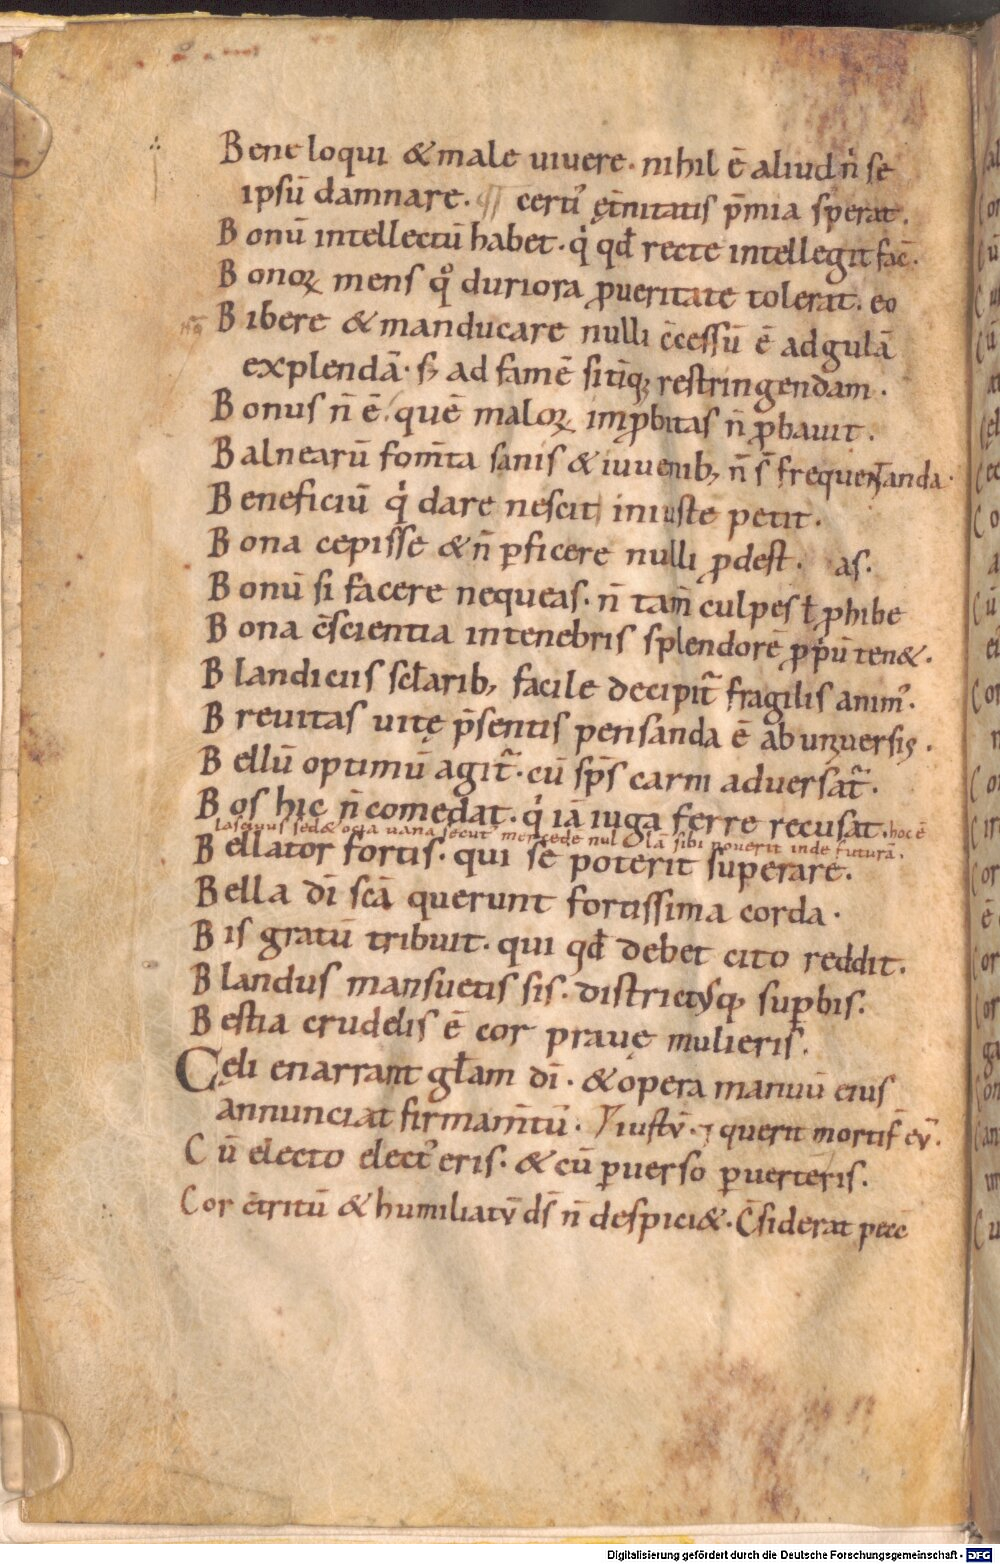 Bene loqui & male uiuere. nihil ē aliud n̍ se
ipsū damnare. ¶ certꝰ ęt̄nitatis p̄mia sperat.
Bonū intellectū habet. q̍ qđ recte intellegit fac̄.
Bonoꝝ mens qͦ duriora ꝓ ueritate tolerat. eo
Bibere & manducare nulli c̄cessū ē ad gulā
explendā. sꝫ ad famē sitīqꝫ restringendam.
Bonus n̄ ē. quē maloꝝ imꝓbitas n̄ ꝓbauit.
Balnearū fom̄ta sanis & iuuenibꝫ n̄ s̄ frequentanda.
Beneficiū q̍ dare nescit iniuste petit.
Bona cepisse & n̄ ꝑficere nulli ꝓdest. as.
Bonū si facere nequeas. n̄ tam̄ culpes ł ꝓhibe
Bona c̄scientia in tenebris splendorē ꝓp̍ū ten&.
Blandiciis sc̄łaribꝫ facile decipit᷑ fragilis animꝰ.
Breuitas uitę p̄sentis pensanda ē ab uniuersis.
Bellū optimū agit᷑. cū sp̄s carni aduersat᷑.
Bos hic n̄ comedat. q̍ iā iuga ferre recusat. hoc ē
lasciuus sed& ocia uana secut᷒ mercede nullā sibi nouerit inde futurā.
Bellator fortis. qui se poterit superare.
Bella dī scā querunt fortissima corda.
Bis gratū tribuit. qui qđ debet cito reddit.
Blandus mansuetis sis. districtusqꝫ suꝑbis.
Bestia crudelis ē cor prauę mulieris.
Cęli enarrant głam dī. & opera manuū eius
annunciat firmam̄tū. iustū. ⁊ querit mortif̄ eū.
Cū electo electꝰ eris. & cū ꝑuerso ꝑuerteris.
Cor c̄tritū & humiliatū dś n̄ despici&. C̄siderat pecc̄